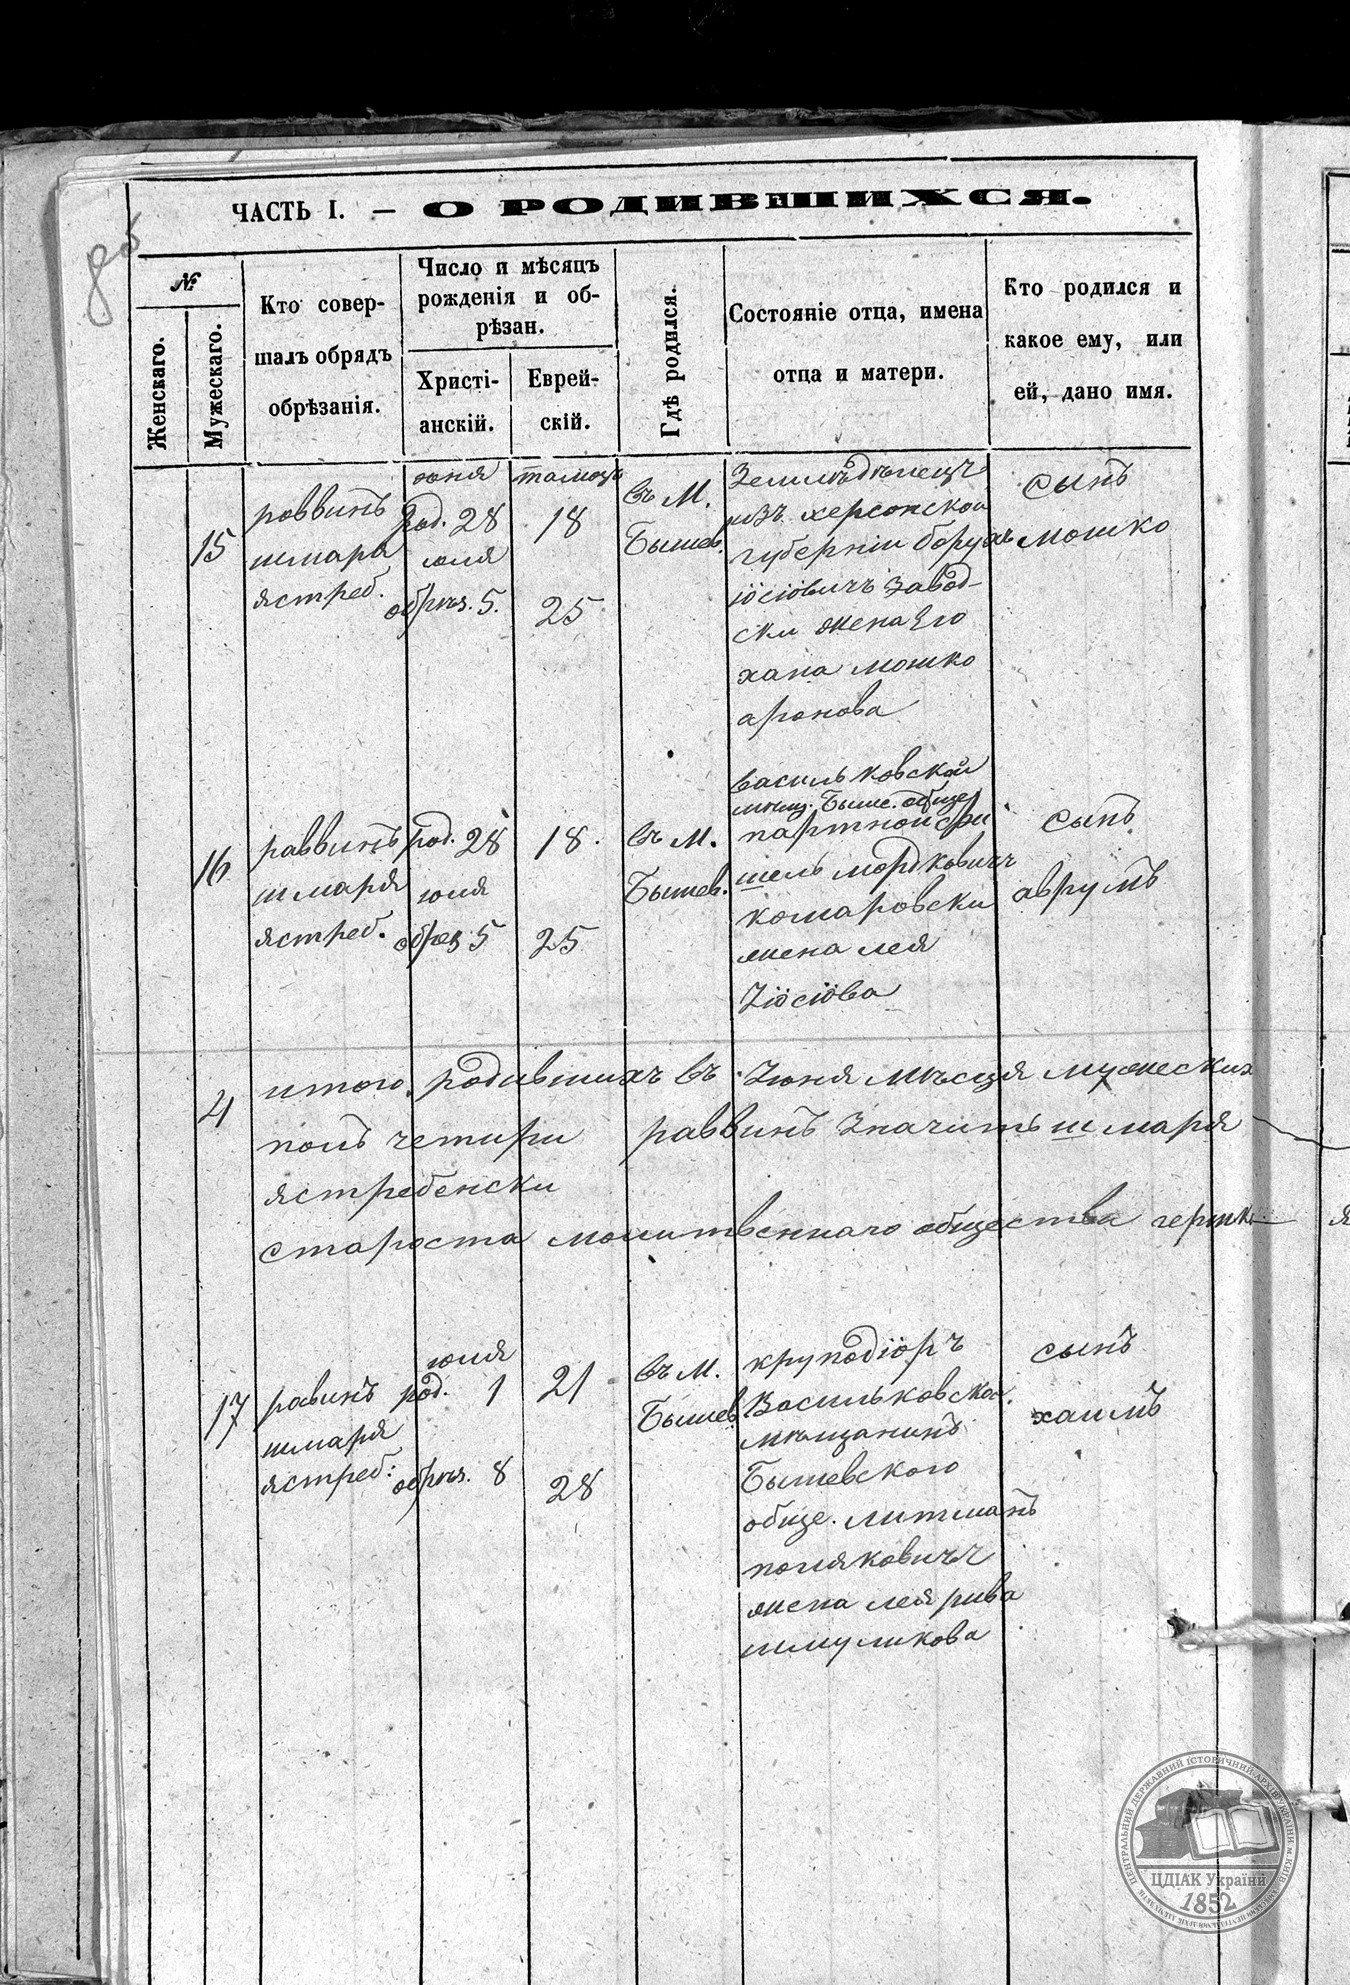 ЧАСТЬ I. — О РОДИВШИХСЯ.
№
Женскаго.
Мужескаго.
Кто совер-
шалъ обрядъ
обрѣзанія.
Число и мѣсяцъ
рожденія и об-
рѣзан.
Христі-
анскій.
Еврей-
скій.
Гдѣ родился.
Состояніе отца, имена
отца и матери.
Кто родился и
какое ему, или
ей, дано имя.
15
роввинъ
шмара
ястреб.
юня
род. 28
юля
обрѣз. 5.
тамозъ
18
25
въ М.
Бышев.
Земилѣдѣлецъ
изъ херсонской
губерніи борухъ
іосіовичъ завод-
ски жена Его
хана мошко
аронова
сынъ
мошко
16
раввинъ
шмаря
ястреб.
род. 28
юля
обрез 5
18.
25
въ М.
Бышев.
васильковской
мѣщ. Быше. обще
партной фи
шель мордковичъ
комаровски
жена лея
Іосіова
сынъ
аврумъ
4
итого родившихъ въ Іюня мѣсця мужеских
полъ четири раввинъ значить шмаря
ястребенски
староста молитвеннаго общества гершко
17
равинъ
шмаря
ястреб:
юля
род. 1
обрѣз. 8
21
28
въ М.
Бышев
круподіоръ
Васильковска.
мѣщанинъ
Бышевского
обще. литманъ
поляковичъ
жена лея рива
шмуликова
сынъ
хаимъ
ЦЕНТРАЛЬНИЙ ДЕРЖАВНИЙ ІСТОРИЧНИЙ АРХІВ УКРАЇНИ М. КИЇВ
ЦДІАК України
1852